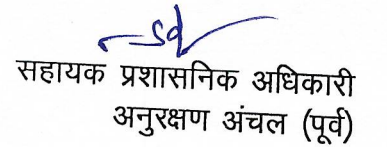 sd
सहायक प्रशासनिक अधिकारी
अनुरक्षण अंचल (पूर्व)